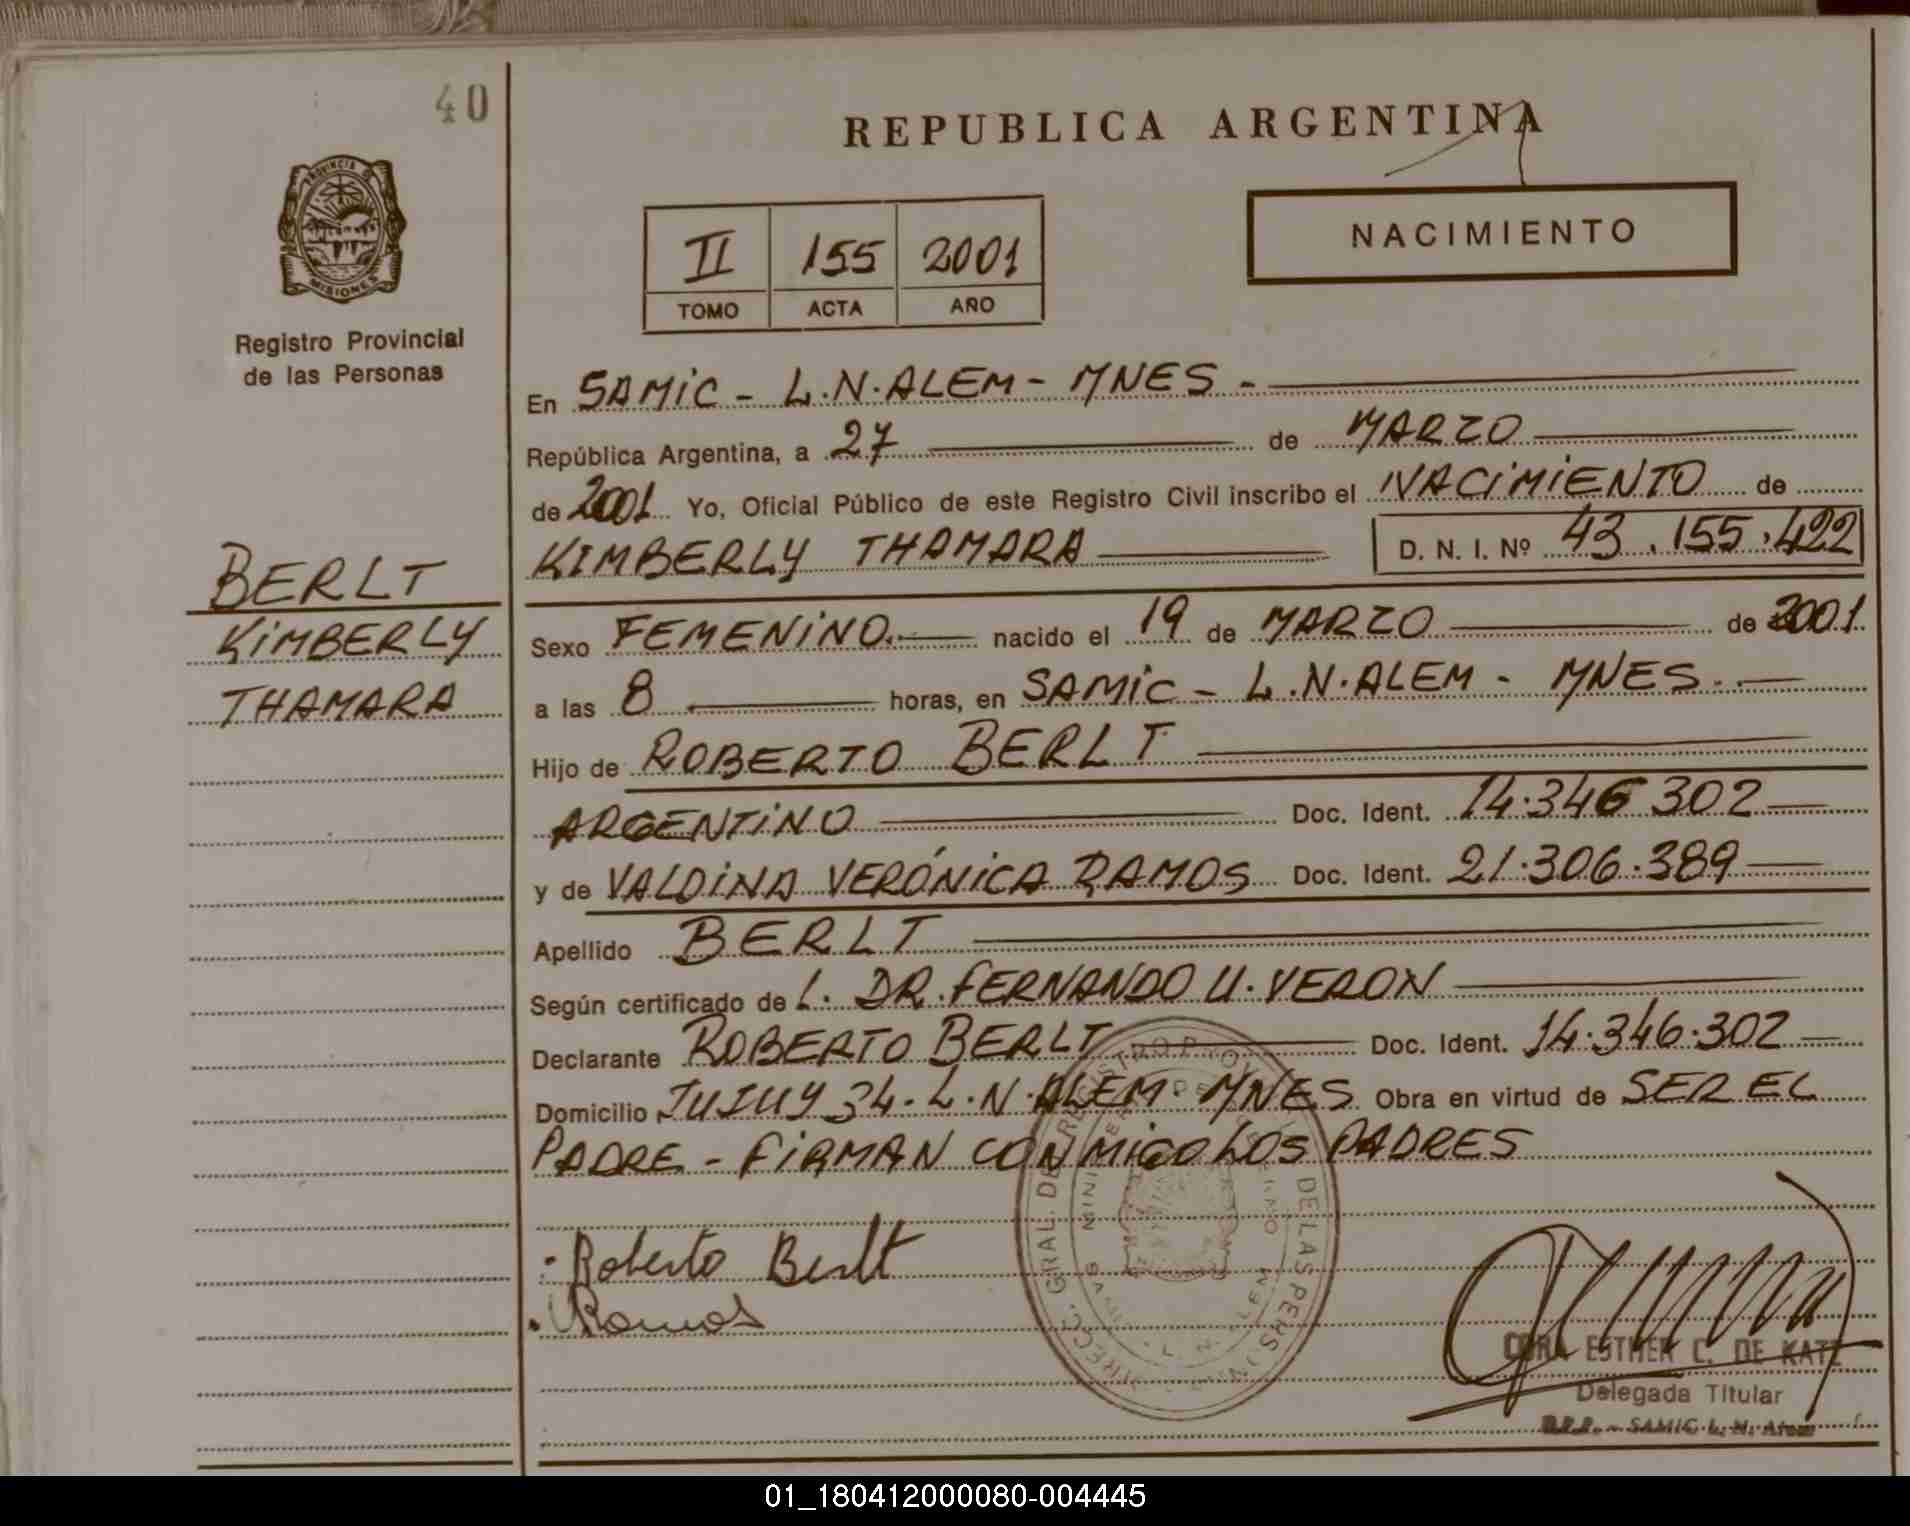 40
REPUBLICA ARGENTINA
PROVINCIA DE
MISIONES
Registro Provincial
de las Personas
II 155 2001
TOMO ACTA AÑO
NACIMIENTO
En SAMIC - L.N.ALEM - MNES -
República Argentina, a 27 de MARZO
de 2001 Yo, Oficial Público de este Registro Civil inscribo el NACIMIENTO de
KIMBERLY THAMARA D. N. I. Nº 43.155.422
BERLT
KIMBERLY
THAMARA
Sexo FEMENINO.- nacido el 19 de MARZO de 2001
a las 8 horas, en SAMIC - L.N.ALEM - MNES.-
Hijo de ROBERTO BERLT
ARGENTINO Doc. Ident. 14.346 302
y de VALDINA VERÓNICA RAMOS Doc. Ident. 21.306.389
Apellido BERLT
Según certificado de L. DR. FERNANDO U. VERON
Declarante ROBERTO BERLT Doc. Ident. 14.346.302
Domicilio JUJUY 34. L.N.ALEM. MNES Obra en virtud de SER EL
PADRE - FIRMAN CONMIGO LOS PADRES
Roberto Berlt
Ramos
ESTHER C. DE KATZ
Delegada Titular
SAMIC L. N. Alem
01_180412000080-004445